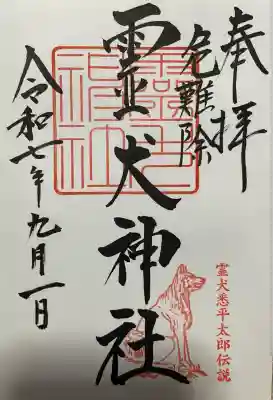 奉拝
危難除
霊犬神社
令和七年九月一日
霊犬悉平太郎伝説